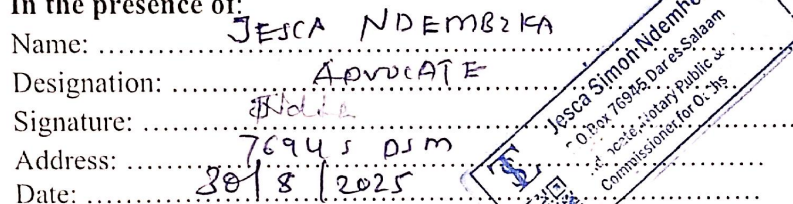 In the presence of:
Name: JESCA NDEMBZKA
Designation: ADVOCATE
Signature:
Address: 76945 DSM
Date: 30/8/2025
Jesca Simon Ndemb
P.O.Box 76945 Dar es Salaam
Notary Public &
Commissioner for